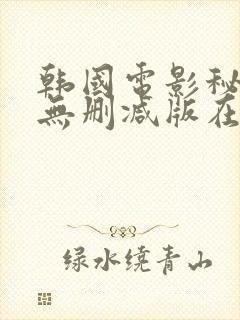 韩國電影秘
無删减版在
绿水绕青山